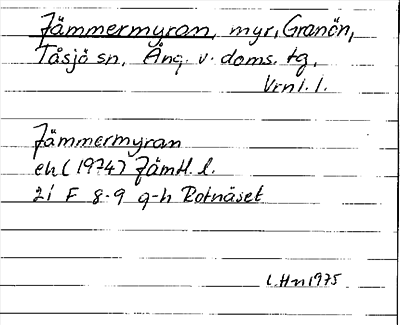 Jämmermyran, myr, Granön,
Tåsjö sn, Ång. v. doms. tg,
Vrnl. l.
Jämmermyran
ek (1974) Jämtl. l.
21 F 8-9 g-h Rotnäset
L Hn 1975